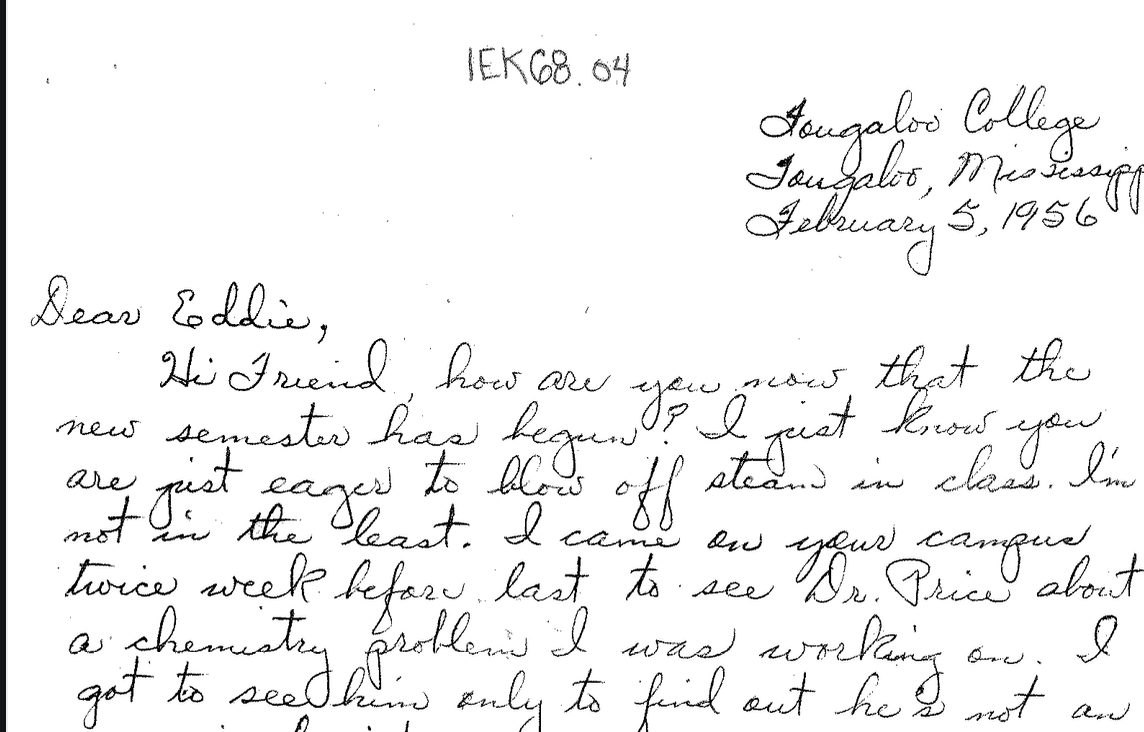 IEK68.04
Tougaloo College
Tougaloo, Mississipp
February 5, 1956
Dear Eddie,
Hi Friend, how are you now that the
new semester has begun? I just know you
are just eager to blow off steam in class. I'm
not in the least. I came on your campus
twice week before last to see Dr. Price about
a chemistry problem I was working on. I
got to see him only to find out he's not an